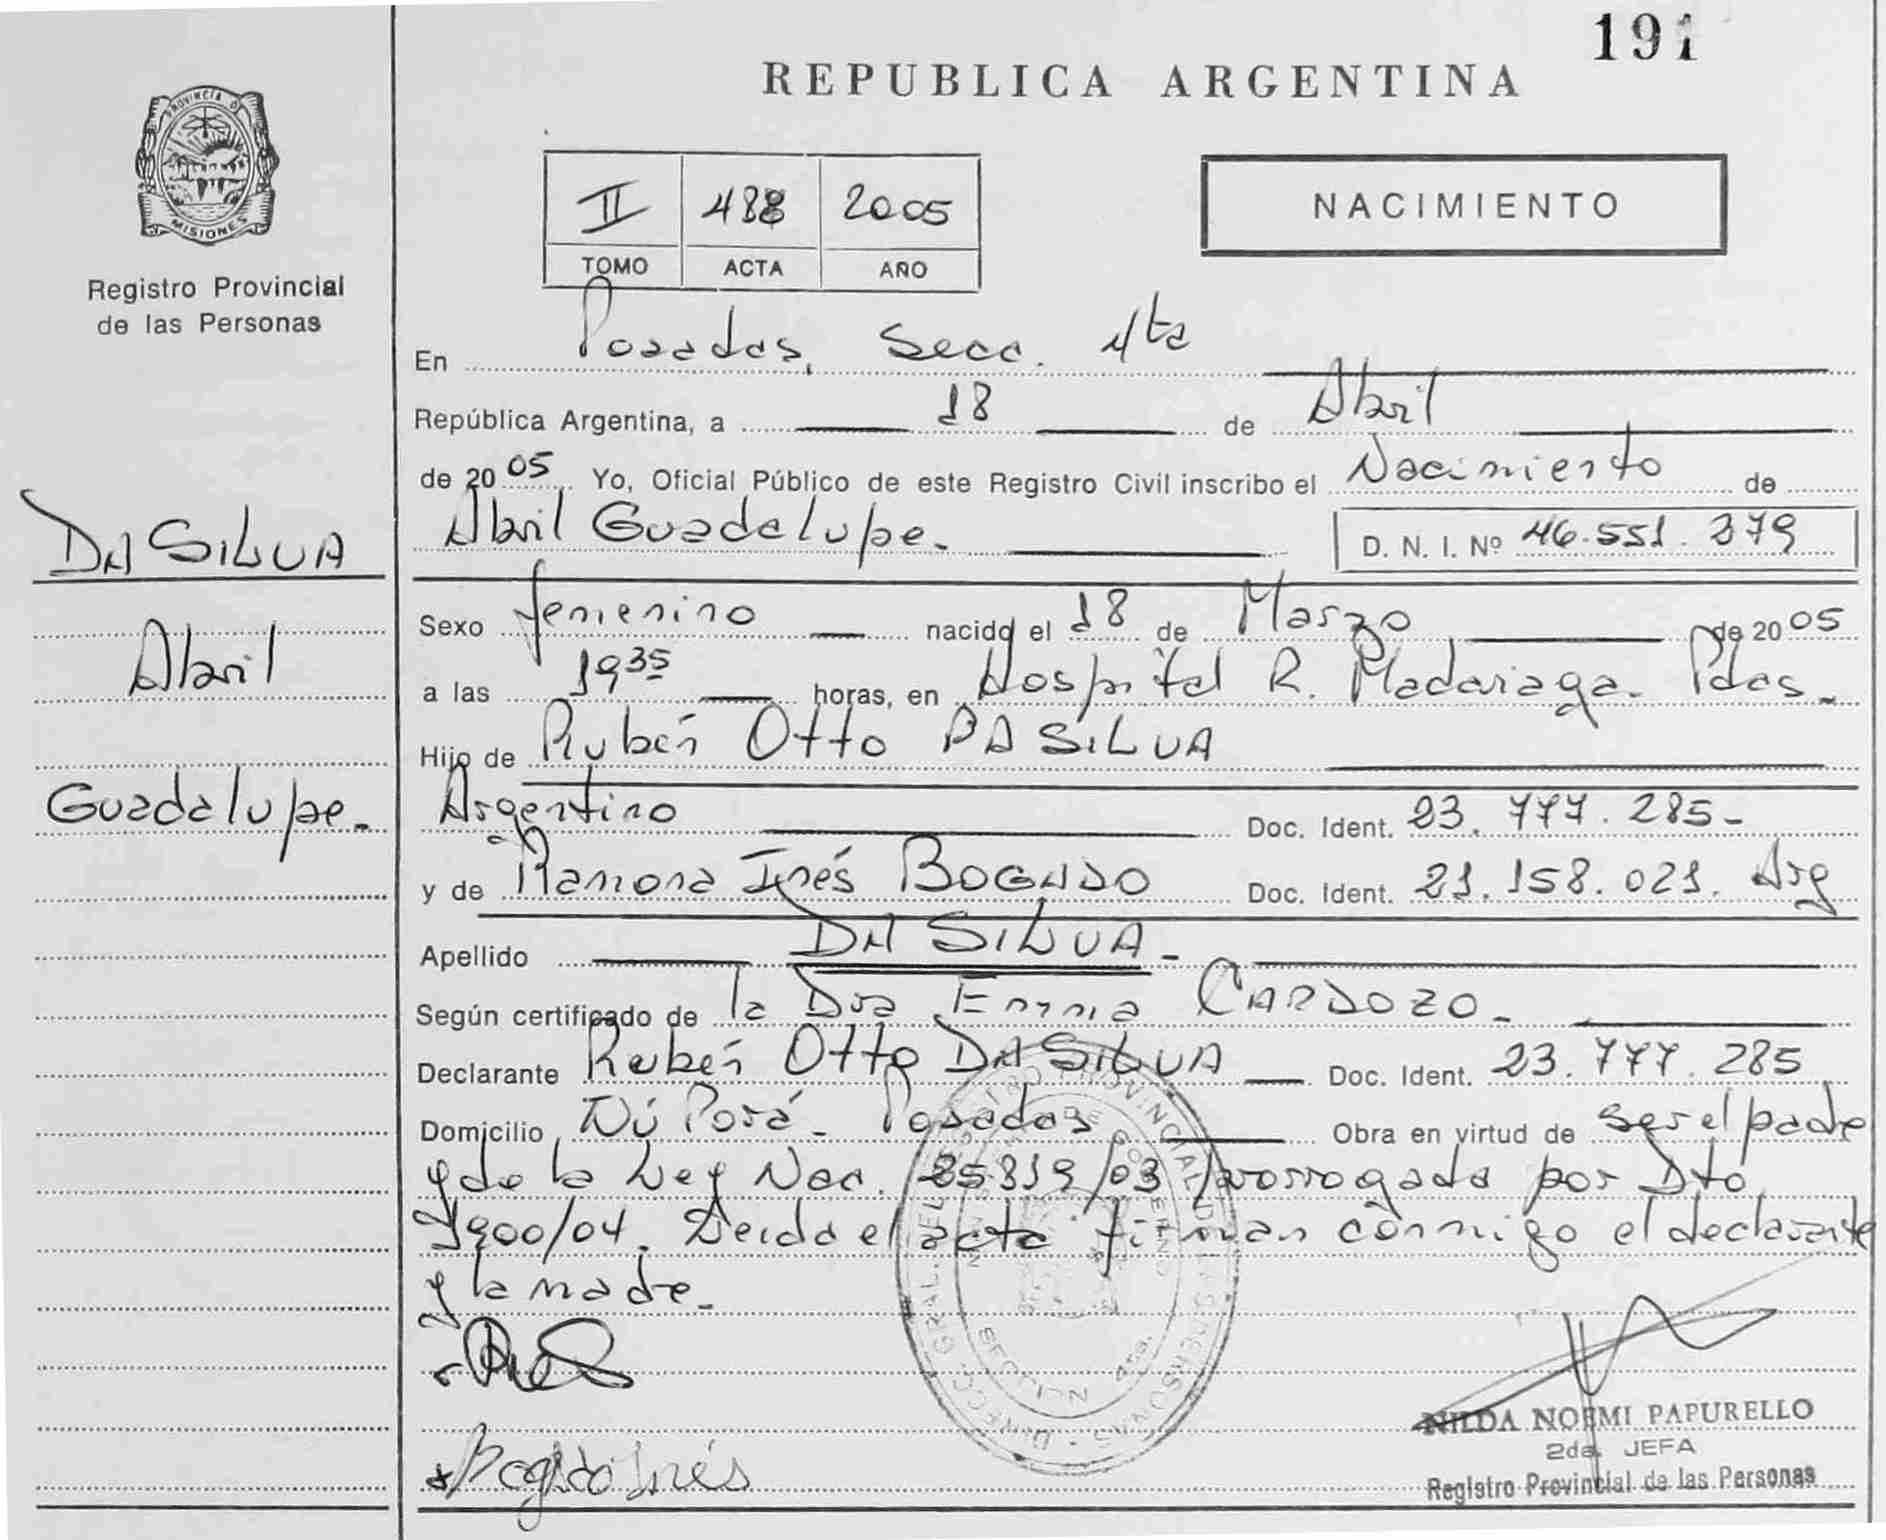 191
REPUBLICA ARGENTINA
PROVINCIA DE
MISIONES
Registro Provincial
de las Personas
II 488 2005
TOMO ACTA AÑO
NACIMIENTO
En Posadas, Secc. 4ta
República Argentina, a 18 de Abril
de 2005 Yo, Oficial Público de este Registro Civil inscribo el Nacimiento de
Abril Guadalupe.
D. N. I. Nº 46.551.379
DA SILVA
Abril
Guadalupe.
Sexo femenino nacido el 18 de Marzo de 2005
a las 19 35 horas, en Hospital R. Madariaga. Pdas.
Hijo de Rubén Otto DA SILVA
Argentino Doc. Ident. 23.777.285-
y de Ramona Inés BOGADO Doc. Ident. 21.158.021. Arg
Apellido DA SILVA-
Según certificado de la Dra Emma CARDOZO-
Declarante Rubén Otto DA SILVA Doc. Ident. 23.777.285
Domicilio Ñú Porá- Posadas, Obra en virtud de ser el padre
y de la Ley Nac. 25.819/03 prorrogada por Dto
1900/04. Leida el acta firman conmigo el declarante
y la madre.
Bogado Inés
NILDA NOEMI PAPURELLO
2da. JEFA
Registro Provincial de las Personas
SECCION 4ta.